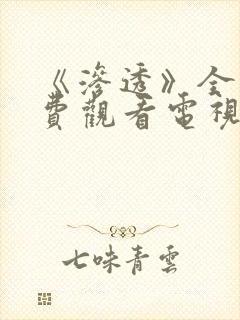 《滲透》全
費觀看電視
七味青雲